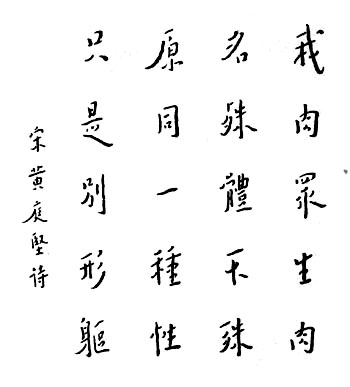 我肉眾生肉
名殊體不殊
原同一種性
只是別形軀
宋黃庭堅诗